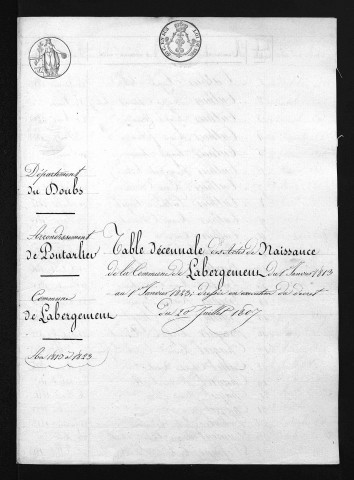 Département
du Doubs
Arrondissement
de Pontarlier
Commune
de Labergement
An 1813 à 1823
Table décennale des Actes de Naissance
de la Commune de Labergement du 1er Janvier 1813
au 1er Janvier 1823; dressée en exécution du décret
du 20 Juillet 1807